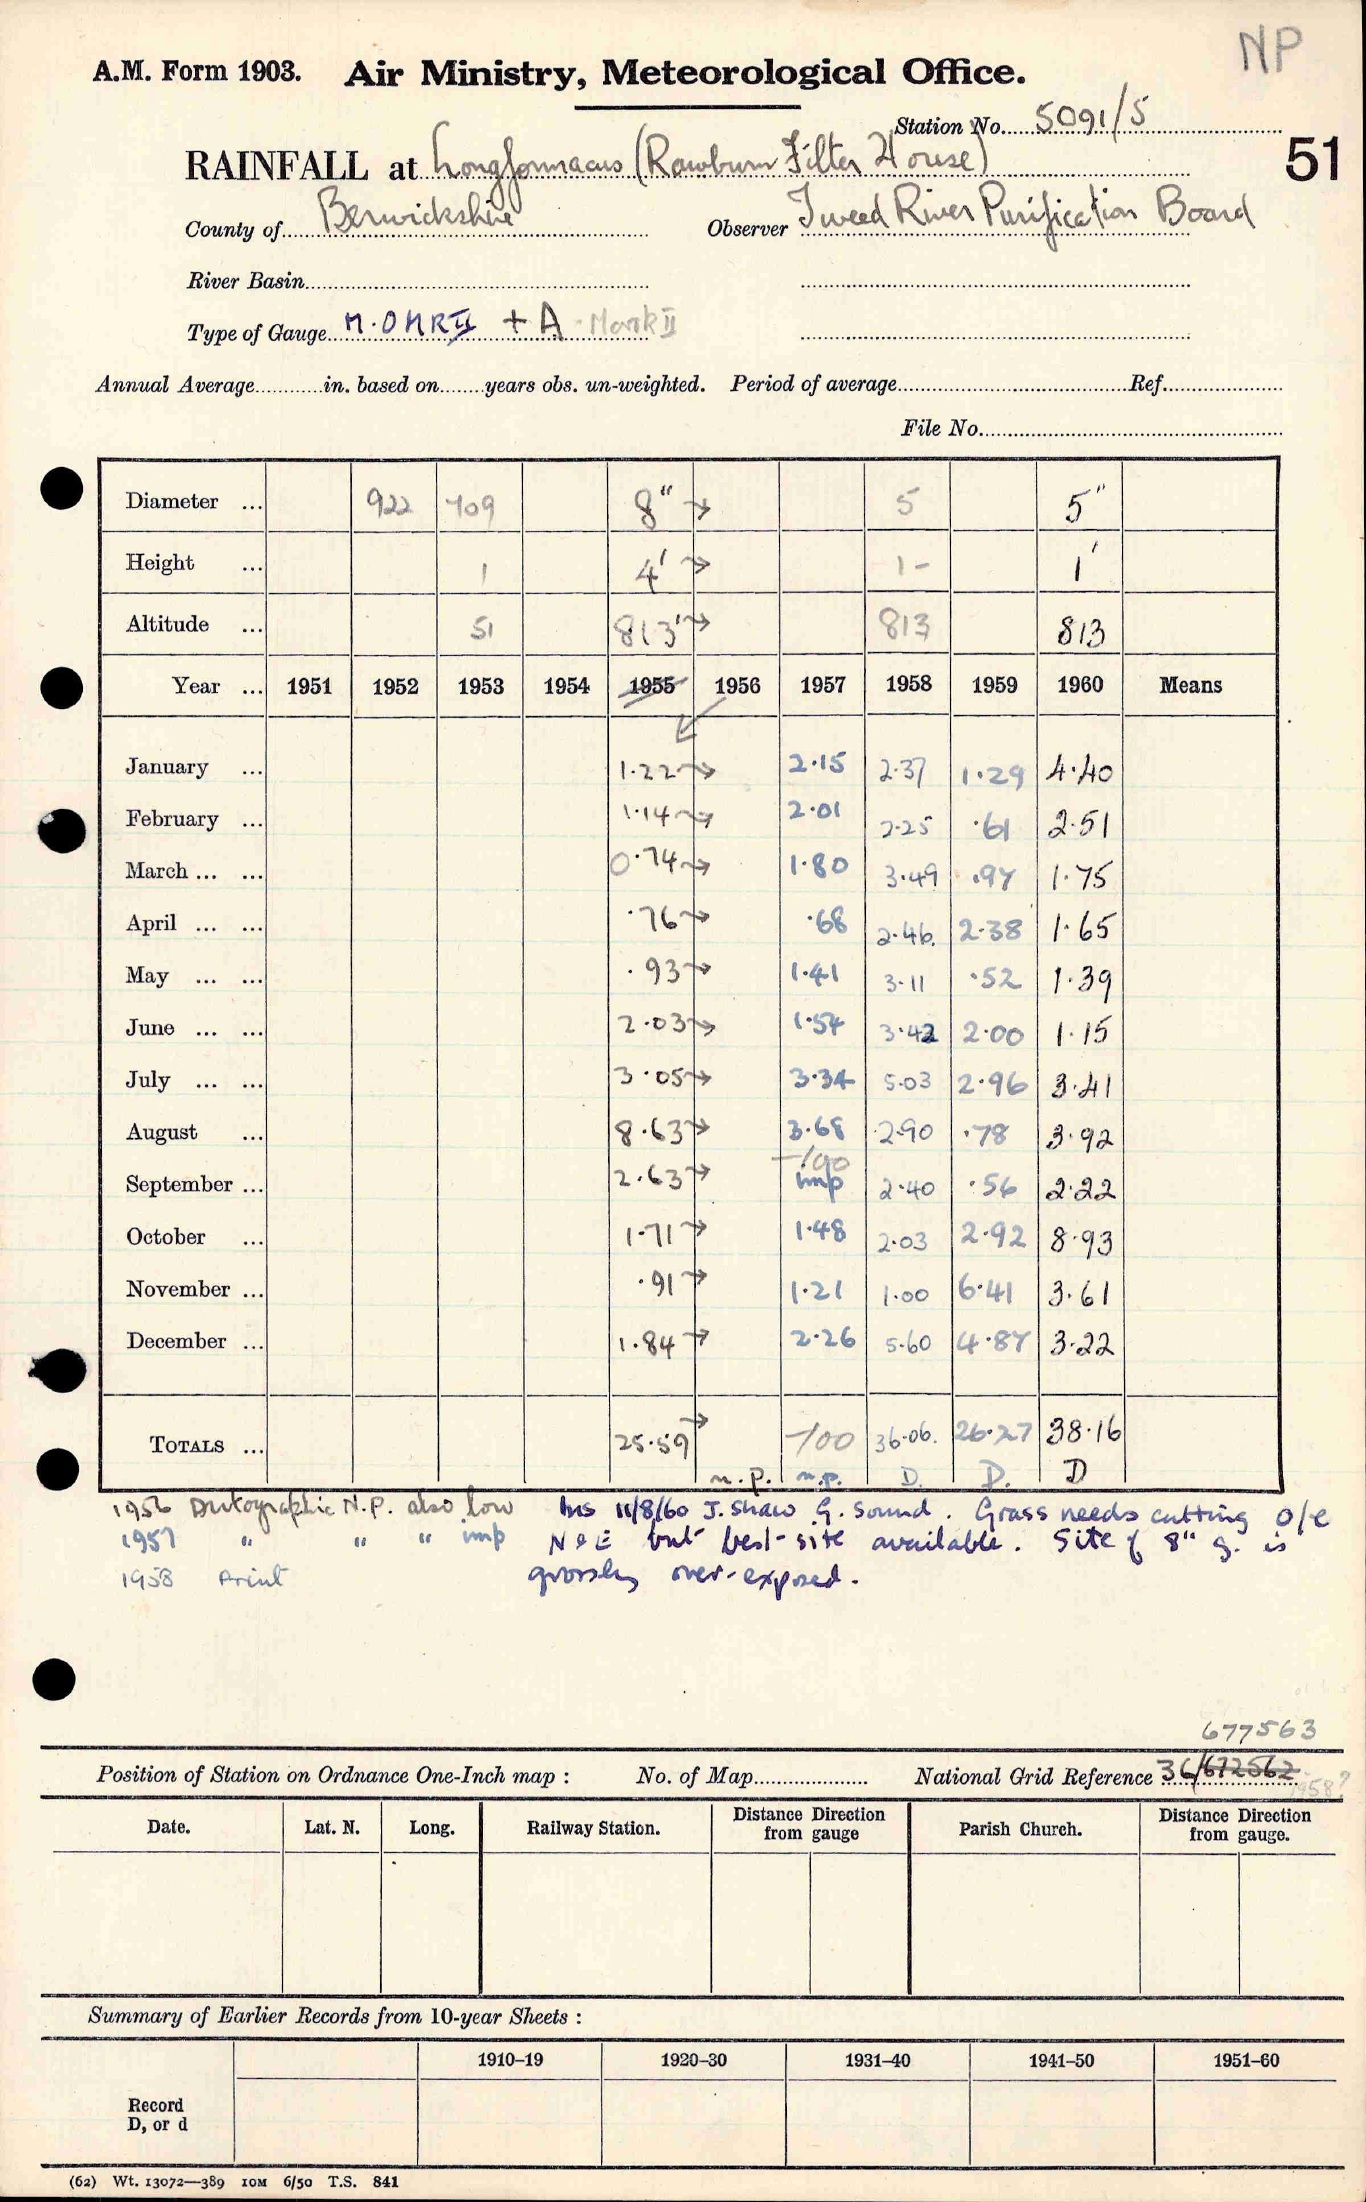 NP
A.M. Form 1903. Air Ministry, Meteorological Office.
Station No. 5091/5
RAINFALL at Longformacus (Rawburn Filter House)
51
County of Berwickshire Observer Tweed River Purification Board
River Basin
Type of Gauge M.O MK II + A Mark II
Annual Average in. based on years obs. un-weighted. Period of average Ref.
File No.
Diameter ... 922 709 8" → 5 5"
Height ... 1 4' → 1- 1'
Altitude ... 51 813' → 813 813
Year ... 1951 1952 1953 1954 1955 1956 1957 1958 1959 1960 Means
January ... 1.22 → 2.15 2.37 1.29 4.40
February ... 1.14 → 2.01 2.25 .61 2.51
March ... ... 0.74 → 1.80 3.49 .97 1.75
April ... ... .76 → .68 2.46. 2.38 1.65
May ... ... .93 → 1.41 3.11 .52 1.39
June ... ... 2.03 → 1.54 3.42 2.00 1.15
July ... ... 3.05 → 3.34 5.03 2.96 3.41
August ... 8.63 → 3.68 2.90 .78 3.92
September ... 2.63 → -100 imp 2.40 .56 2.22
October ... 1.71 → 1.48 2.03 2.92 8.93
November ... .91 → 1.21 1.00 6.41 3.61
December ... 1.84 → 2.26 5.60 4.87 3.22
TOTALS ... 25.59 → -100 36.06. 26.27 38.16
n.p. n.p. D. D. D
1956 Autographic N.P. also low Ins 11/8/60 J. Shaw G. Sound. Grass needs cutting o/e
1957 " " " imp N & E but best site available. Site of 8" g. is
1958 Print grossly over-exposed.
677563
Position of Station on Ordnance One-Inch map : No. of Map National Grid Reference 36/672562
1958?
Date. Lat. N. Long. Railway Station. Distance Direction from gauge Parish Church. Distance Direction from gauge.
Summary of Earlier Records from 10-year Sheets :
1910–19 1920–30 1931–40 1941–50 1951–60
Record
D, or d
(62) Wt. 13072—389 10M 6/50 T.S. 841